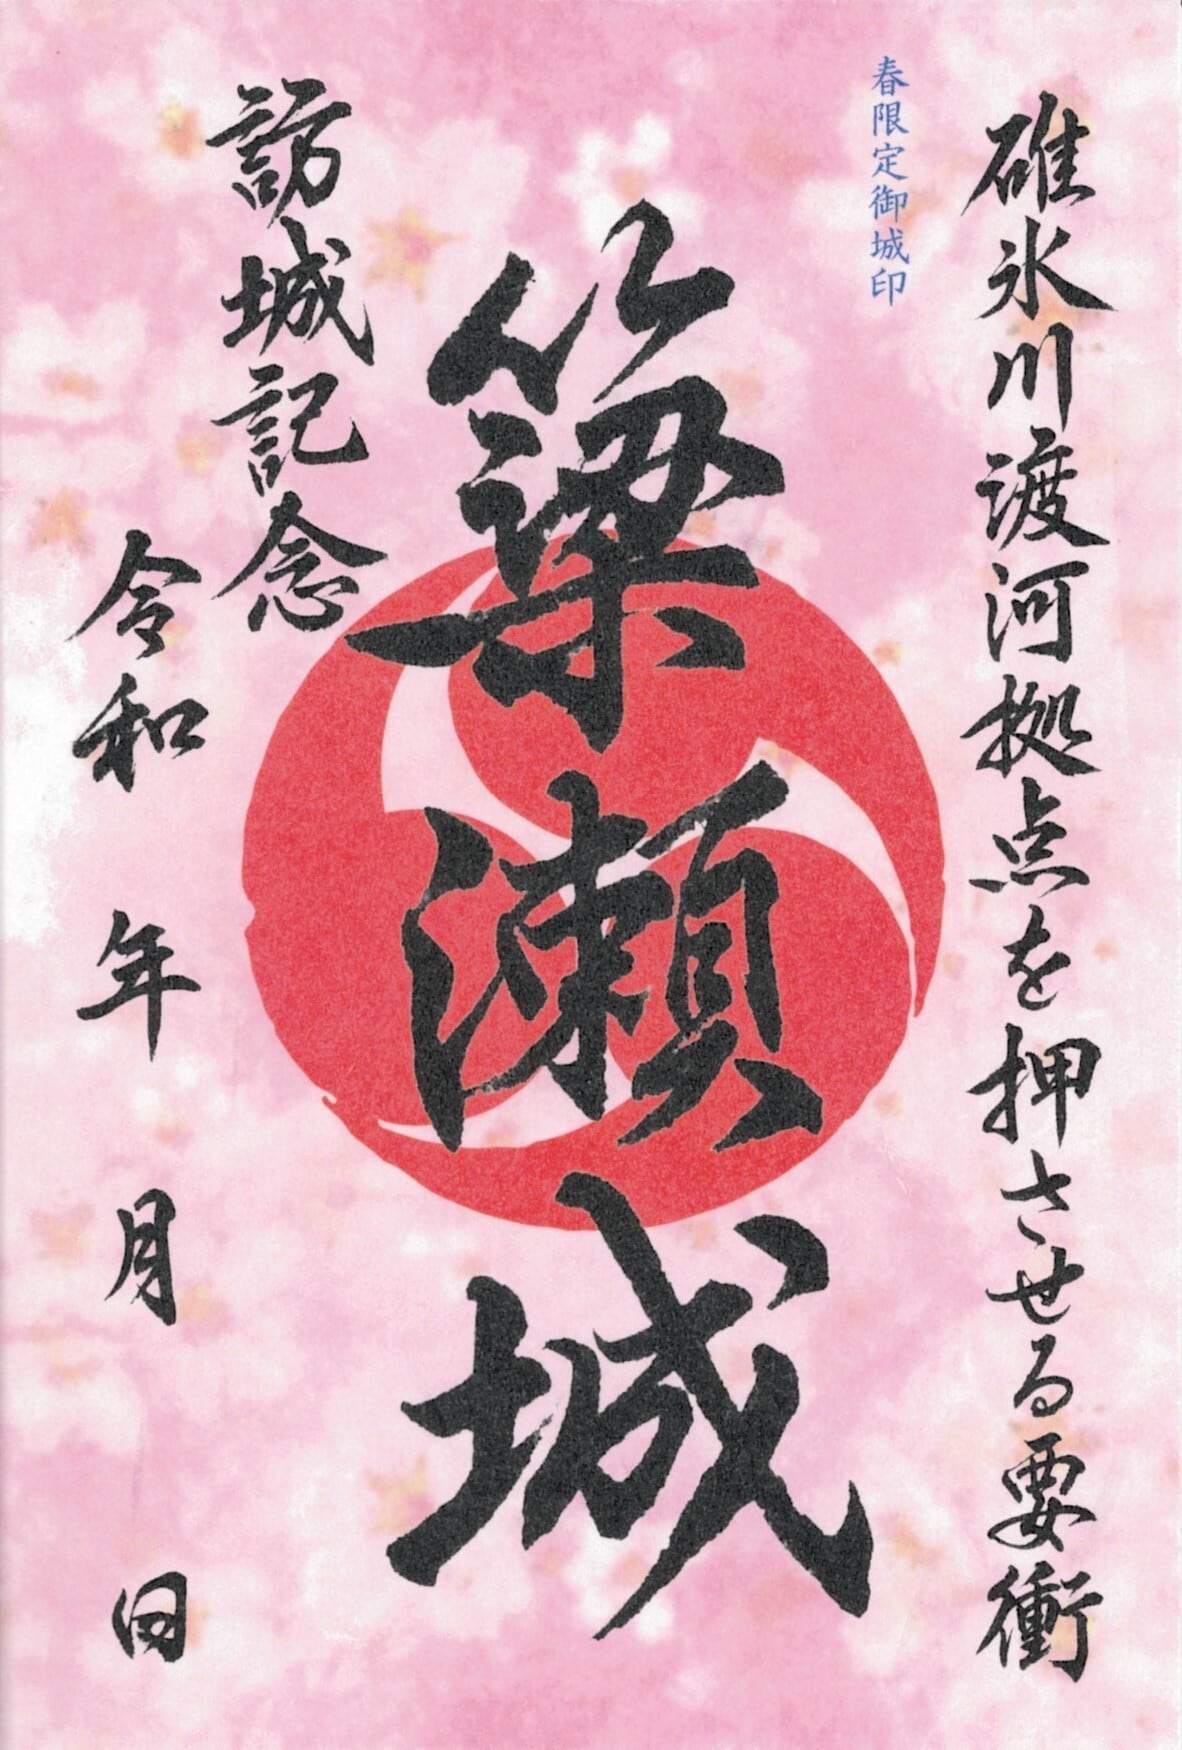 碓氷川渡河拠点を押させる要衝
春限定御城印
簗瀬城
訪城記念
令和 年 月 日